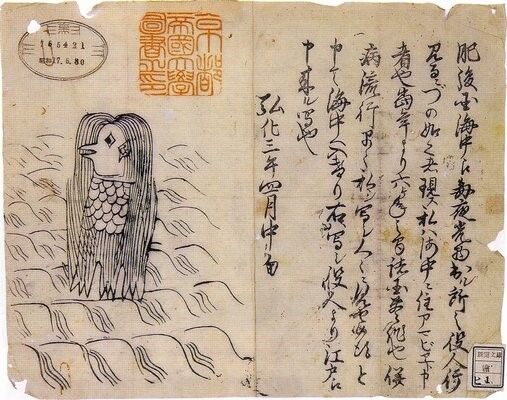 肥後国海中え毎夜光物出ル所之役人行
見るニづの如く者現ス私ハ海中ニ住アマビヱト申
者也当年より六ヶ年之間諸国豊作也併
病流行早々私シ写シ人々ニ見せ候得と
申て海中へ入けり右写シ役人より江戸え
申来ル写也
弘化三年四月中旬
京都
帝國大學
圖書之印
165421
昭和17.5.30
新聞文庫
ヒ 1